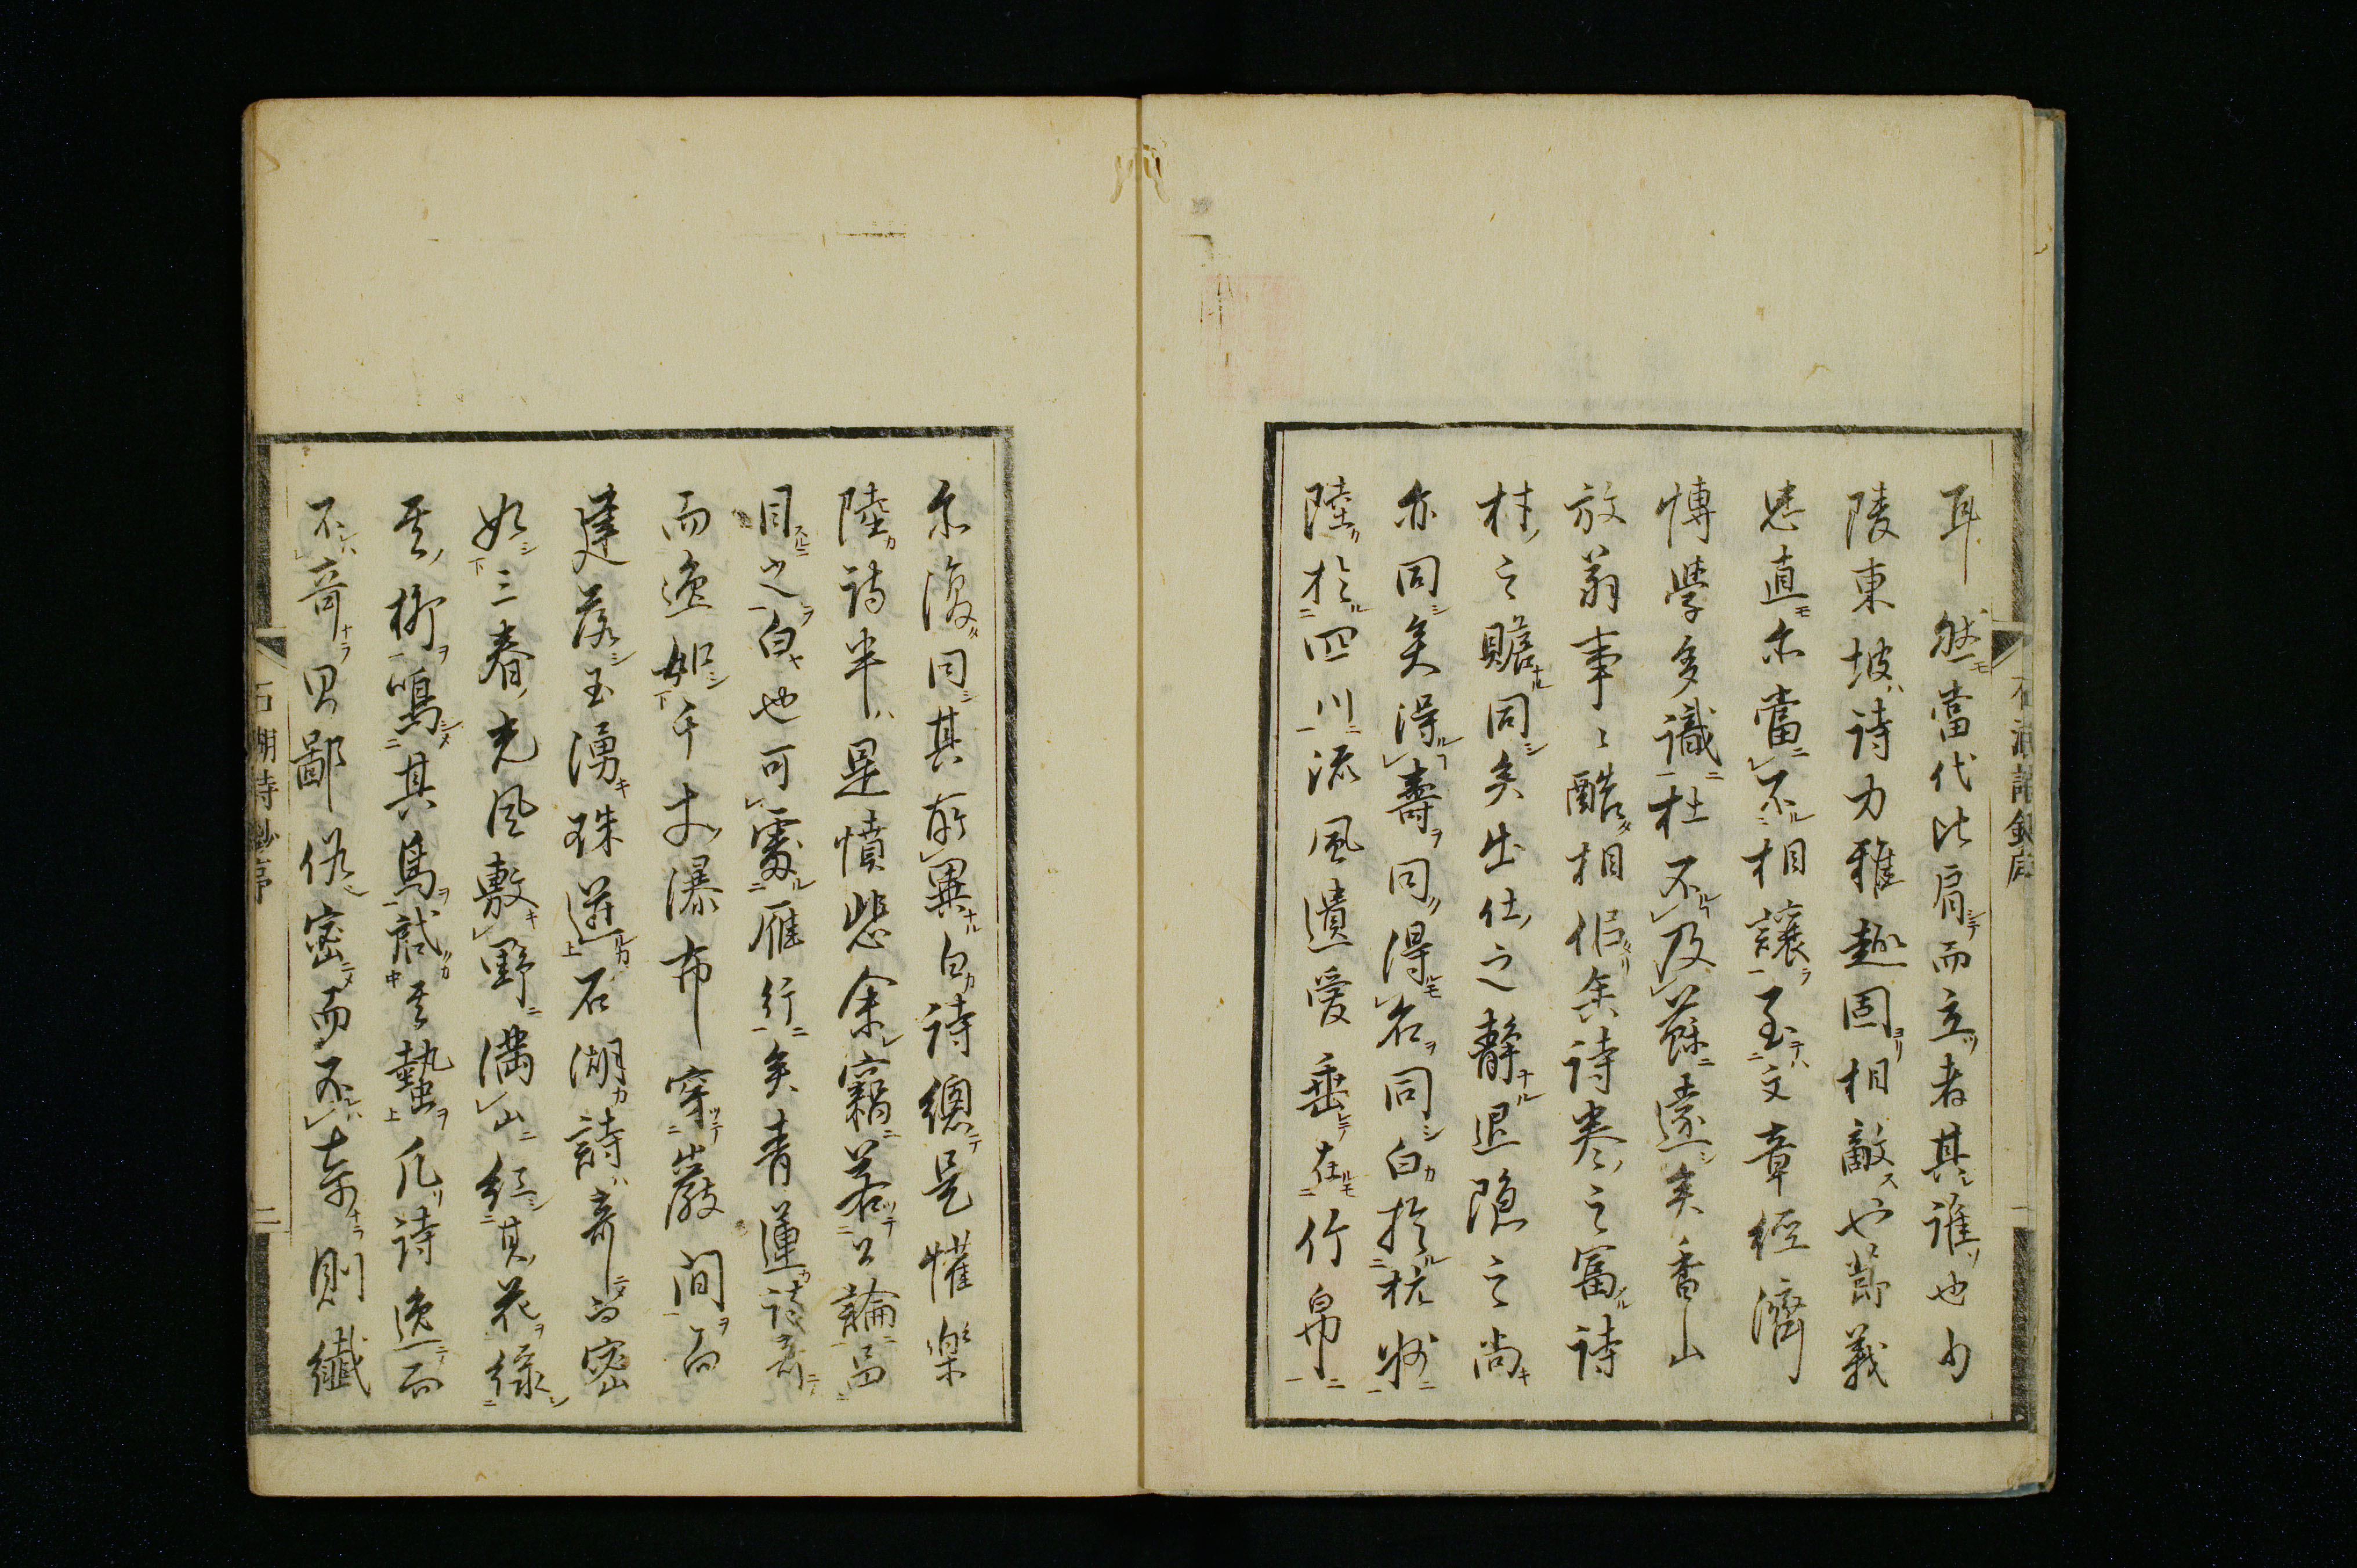 耳然當代比肩而立者其誰也少
陵東坡詩力雅趣固相敵也節義
忠直亦當不相讓至文章經濟
博學多識杜不及蘇遠矣香山
放翁事〻酷相似矣詩卷之富詩
材之贍同矣出仕之靜退隱之尚
亦同矣得壽同得名同白於杭州
陸於四川流風遺愛垂在竹帛
亦復同其所異白詩總是懽樂
陸詩半是憤悲余竊若公論品
目之白也可處雁行矣青蓮詩奇
而逸如千丈瀑布穿巖間而
建落玉湧珠迸石湖詩奇而密
如三春光風敷野滿山紅其花綠
其柳鳴其鳥試其蟄凡詩逸而
不奇則鄙俗密而不奇則纖
石湖詩鈔序
二